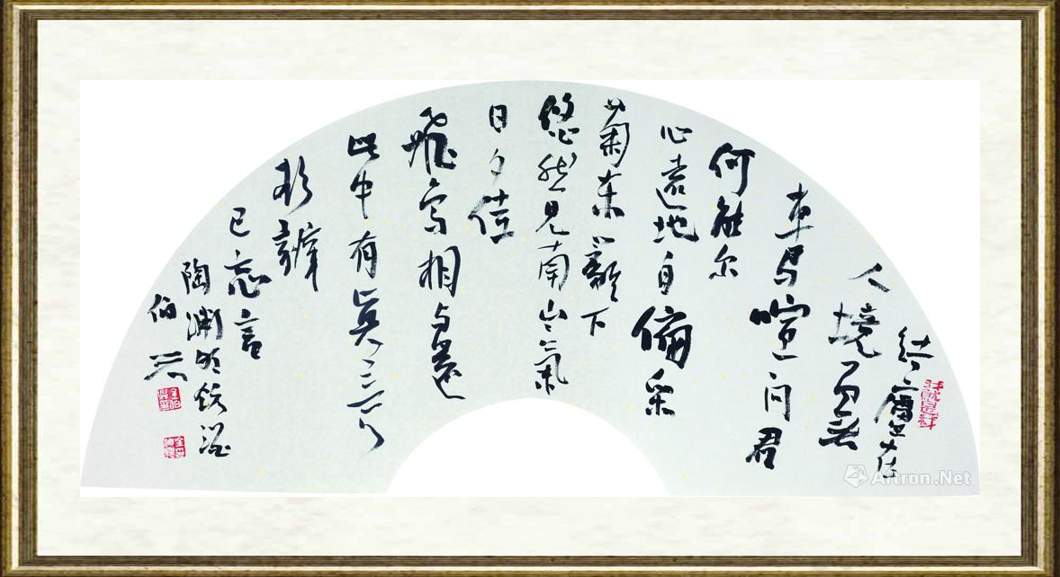 结廬在
人境而無
車馬喧问君
何能尔
心遠地自偏采
菊東篱下
悠然見南山〻氣
日夕佳
飛鸟相与還
此中有真意
欲辯
已忘言
陶渊明饮酒
伯兴
Artron.Net